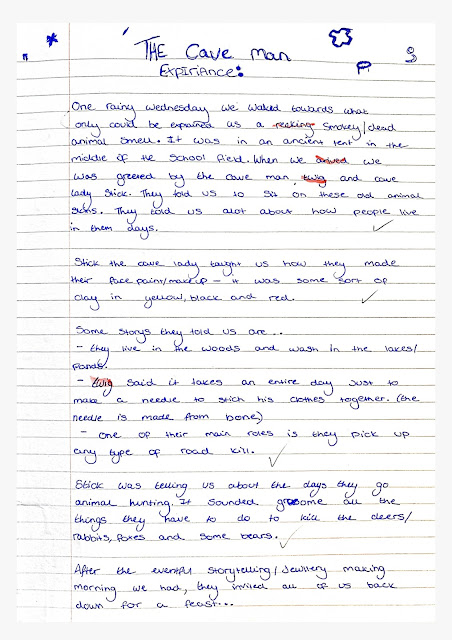 THE Cave Man
Expiriance:
One rainy wednesday we walked towards what
only could be expained as a reeking smokey/dead
animal smell. It was in an ancient tent in the
middle of the School field. When we arived we
was greeted by the cave man twig and cave
lady stick. They told us to sit on these old animal
skins. They told us alot about how people live
in them days.
Stick the cave lady taught us how they made
their face paint/makeup - it was some sort of
clay in yellow, black and red.
Some storys they told us are...
- they live in the woods and wash in the lakes/
ponds.
- twig said it takes an entire day just to
make a needle to stich his clothes together. (the
needle is made from bone)
- one of their main roles is they pick up
any type of road kill.
Stick was telling us about the days they go
animal hunting. It sounded gruesome all the
things they have to do to kill the deers/
rabbits, foxes and some bears.
After the eventful storytelling/Jewllery making
morning we had, they invited all of us back
down for a feast...